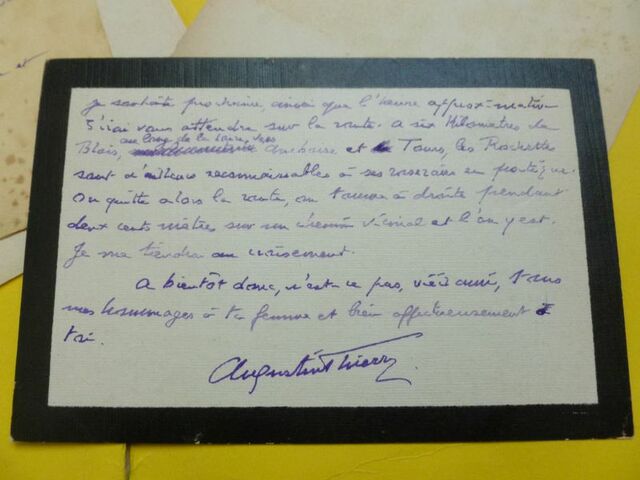 je souhaite prochaine, ainsi que l'heure approximative
J'irai vous attendre sur la route. A six kilomètres de
au long de la Loire, vers
Blois, Amboise et Tours, les Rochettes
sont d'ailleurs reconnaissables à ses roseraies en portique.
On quitte alors la route, on tourne à droite pendant
deux cents mètres sur un chemin vicinal et l'on y est.
Je me tiendrai au croisement.
A bientôt donc, n'est-ce pas, vieil ami, tous
mes hommages à ta femme et bien affectueusement à
toi.
Augustin Thierry